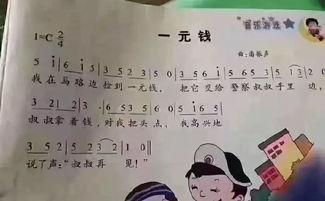 音乐游戏
1=C 2/4
一元钱
曲:潘振声
5 i | 6 i 5 | 3 5 2 3 | 5 0 | 3 5 6 i | 5 6 3 5 |
我在马路边捡到一元钱, 把它交给警察叔叔手里边,
3 2 | 2 3 · | 6 5 3 5 | 6 0 | 5 i 6 5 |
叔叔拿着钱,对我把头点, 我高兴地
3 5 2 | 5 2 3 2 | 1 0 ‖
说了声:“叔叔再 见!”